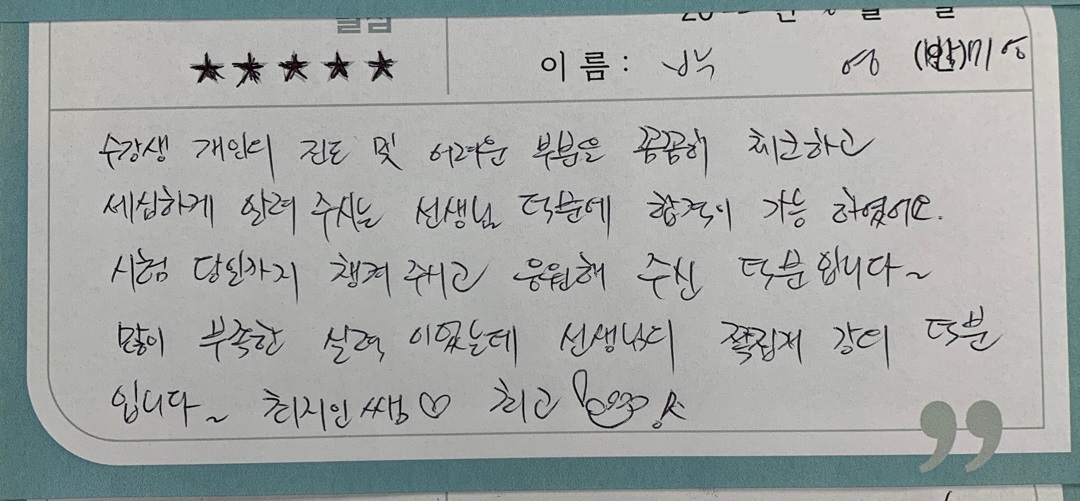 이름: 박 영
수강생 개인의 진도 및 어려운 부분을 꼼꼼히 체크하고
세심하게 알려 주시는 선생님 덕분에 합격이 가능 하였어요.
시험 당일까지 챙겨 주시고 응원해 주신 덕분입니다~
많이 부족한 실력 이였는데 선생님의 쪽집게 강의 덕분
입니다~ 최지인쌤♡ 최고